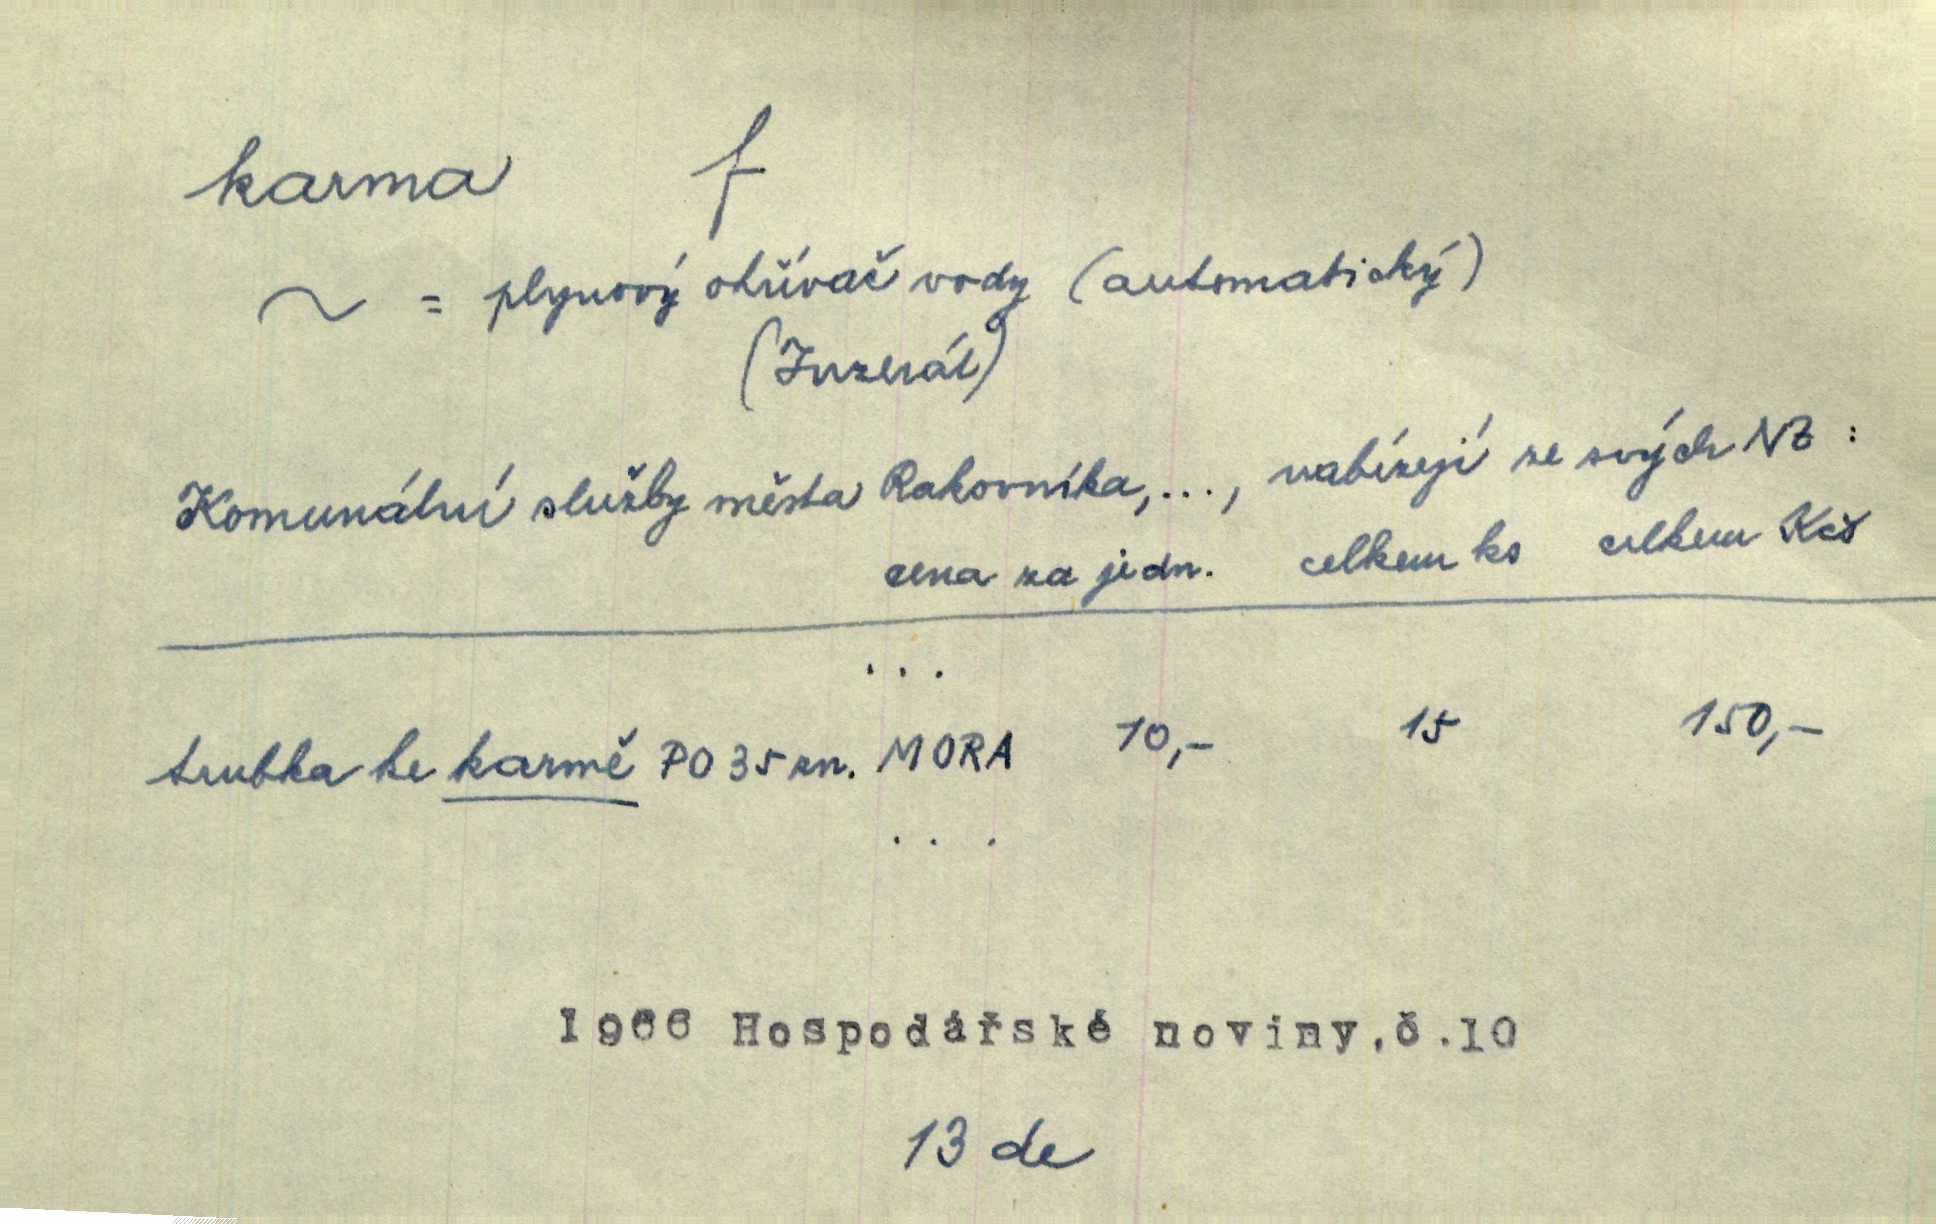 karma f
~ = plynový ohřívač vody (automatický)
(Inzerát)
Komunální služby města Rakovníka,..., nabízejí ze svých NZ :
cena za jedn. celkem ks celkem Kčs
...
trubka ke karmě PO 35 zn. MORA 10,- 15 150,-
...
1966 Hospodářské noviny,č.10
13 de